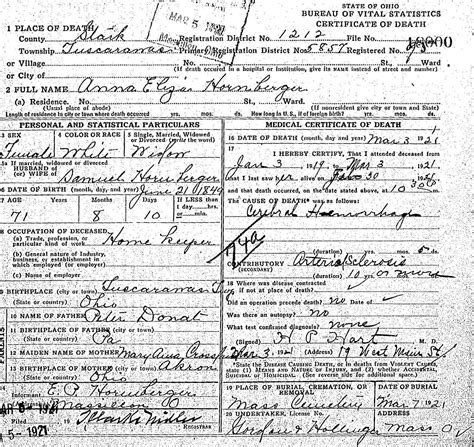 STATE OF OHIO
BUREAU OF VITAL STATISTICS
CERTIFICATE OF DEATH
1 PLACE OF DEATH
County Stark
Registration District No. 1212
Township Tuscarawas Primary Registration District No. 5857 Registered No.
or Village No. St., Ward
(If death occurred in a hospital or institution, give its NAME instead of street and number)
or City of
2 FULL NAME Anna Eliza Hornberger
(a) Residence. No. St., Ward.
(Usual place of abode) (If nonresident give city or town and State)
Length of residence in city or town where death occurred yrs. mos. ds. How long in U.S., if of foreign birth? yrs. mos. ds.
PERSONAL AND STATISTICAL PARTICULARS
3 SEX
4 COLOR OR RACE
5 Single, Married, Widowed
or Divorced
Female White Widow
5a If married, widowed, or divorced
HUSBAND of
(or) WIFE of Samuel Hornberger
6 DATE OF BIRTH (month, day, and year) June 21 1849
7 AGE Years Months Days If LESS than
1 day, hrs.
or min.
71 8 10
8 OCCUPATION OF DECEASED
(a) Trade, profession, or
particular kind of work Home Keeper
(b) General nature of Industry,
business, or establishment in
which employed (or employer)
(c) Name of employer
9 BIRTHPLACE (city or town) Tuscarawas
(State or country) Ohio
10 NAME OF FATHER Peter Donat
11 BIRTHPLACE OF FATHER (city or town)
(State or country) Pa
12 MAIDEN NAME OF MOTHER Mary Ann
13 BIRTHPLACE OF MOTHER (city or town) Akron
(State or country) Ohio
Informant Hornberger
(Address) Massillon O
1921
PARENTS
MEDICAL CERTIFICATE OF DEATH
16 DATE OF DEATH (month, day, and year) Mar 3 1921
17
I HEREBY CERTIFY, That I attended deceased from
Jan 3, 19 to Mar 3, 1921
that I last saw her alive on Jan 30, 1921
and that death occurred, on the date stated above, at 10 30 m.
The CAUSE OF DEATH was as follows:
Cerebral Haemorrhage
74a
(duration) yrs. mos. ds.
CONTRIBUTORY Arterio Sclerosis
(SECONDARY)
(duration) 10 yrs. or more
18 Where was disease contracted
if not at place of death?
Did an operation precede death? no Date of
Was there an autopsy? no
What test confirmed diagnosis? none
(Signed) H P Hart
Mar. 3, 1921 (Address) 19 West Main St
19 PLACE OF BURIAL, CREMATION, OR REMOVAL DATE OF BURIAL
Mass Cemetery Mar 7 1921
20 UNDERTAKER, License No. ADDRESS
Gordon & Hollinger Mass O